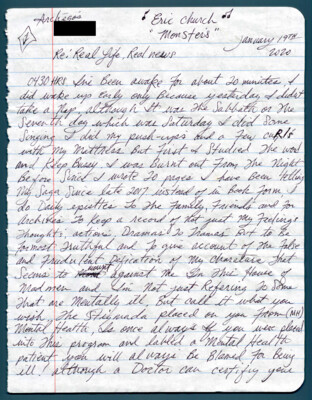 Archives
♪ Eric Church ♪
"Monsters"
January 19th
2020
Re: Real Life, Real news
0430 HRS. I've Been awake for about 20 minutes, I
did wake up early only Because yesterday I didn't
take a Nap, although It was the Sabbath or the
Seventh day which was Saturday. I did some
Singing I did my push-ups and a few
with my But first I Studied The word
and Keep Busy. I was Burnt out From The Night
Before Since I wrote 20 pages I have Been telling
My Saga Since late 2017 instead of in Book Form I
do Daily epistles To the Family, Friends and for
Archives To Keep a record of Not just my Feelings
Thoughts, actions Dramas To Thamas But to be
formost Truthful and To give account of The False
and of my Charecture That
Seems to mount against me In This House of
Madmen and I'm Not just Refering To Some
That are Mentally ill But call it what you
wish. The placed on you from (MH)
Mental Health, Is once always If you were placed
into This program and labled a Mental Health
patient you will always Be Blamed for Being
ill! although a Doctor can certify your